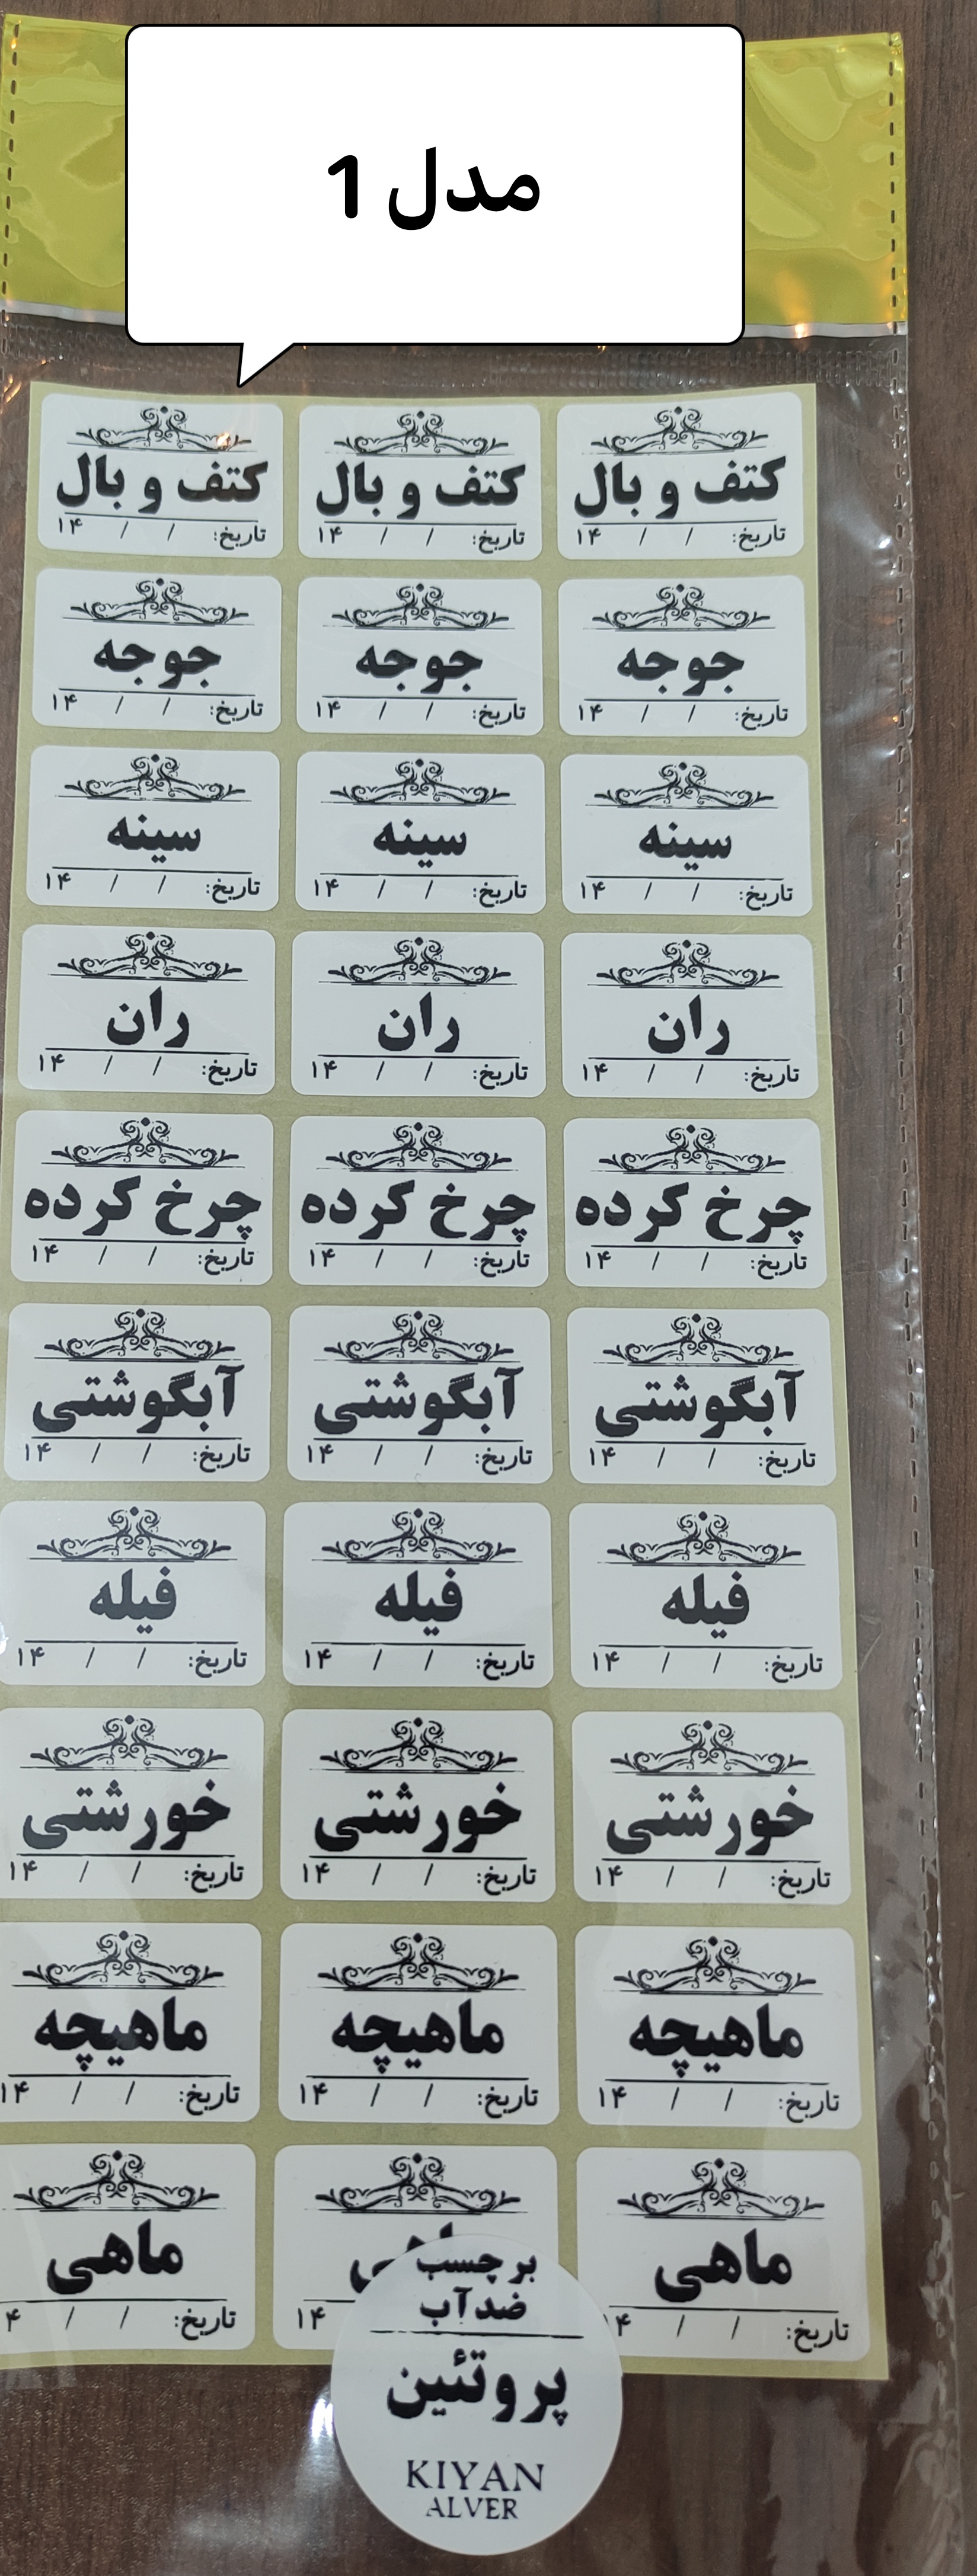 مدل 1
کتف و بال کتف و بال کتف و بال
تاریخ: / / ۱۴ تاریخ: / / ۱۴ تاریخ: / / ۱۴
جوجه جوجه جوجه
تاریخ: / / ۱۴ تاریخ: / / ۱۴ تاریخ: / / ۱۴
سینه سینه سینه
تاریخ: / / ۱۴ تاریخ: / / ۱۴ تاریخ: / / ۱۴
ران ران ران
تاریخ: / / ۱۴ تاریخ: / / ۱۴ تاریخ: / / ۱۴
چرخ کرده چرخ کرده چرخ کرده
تاریخ: / / ۱۴ تاریخ: / / ۱۴ تاریخ: / / ۱۴
آبگوشتی آبگوشتی آبگوشتی
تاریخ: / / ۱۴ تاریخ: / / ۱۴ تاریخ: / / ۱۴
فیله فیله فیله
تاریخ: / / ۱۴ تاریخ: / / ۱۴ تاریخ: / / ۱۴
خورشتی خورشتی خورشتی
تاریخ: / / ۱۴ تاریخ: / / ۱۴ تاریخ: / / ۱۴
ماهیچه ماهیچه ماهیچه
تاریخ: / / ۱۴ تاریخ: / / ۱۴ تاریخ: / / ۱۴
ماهی ماهی
تاریخ: / / ۱۴ ۱۴ تاریخ: / / ۴
برچسب
ضدآب
پروتئین
KIYAN
ALVER